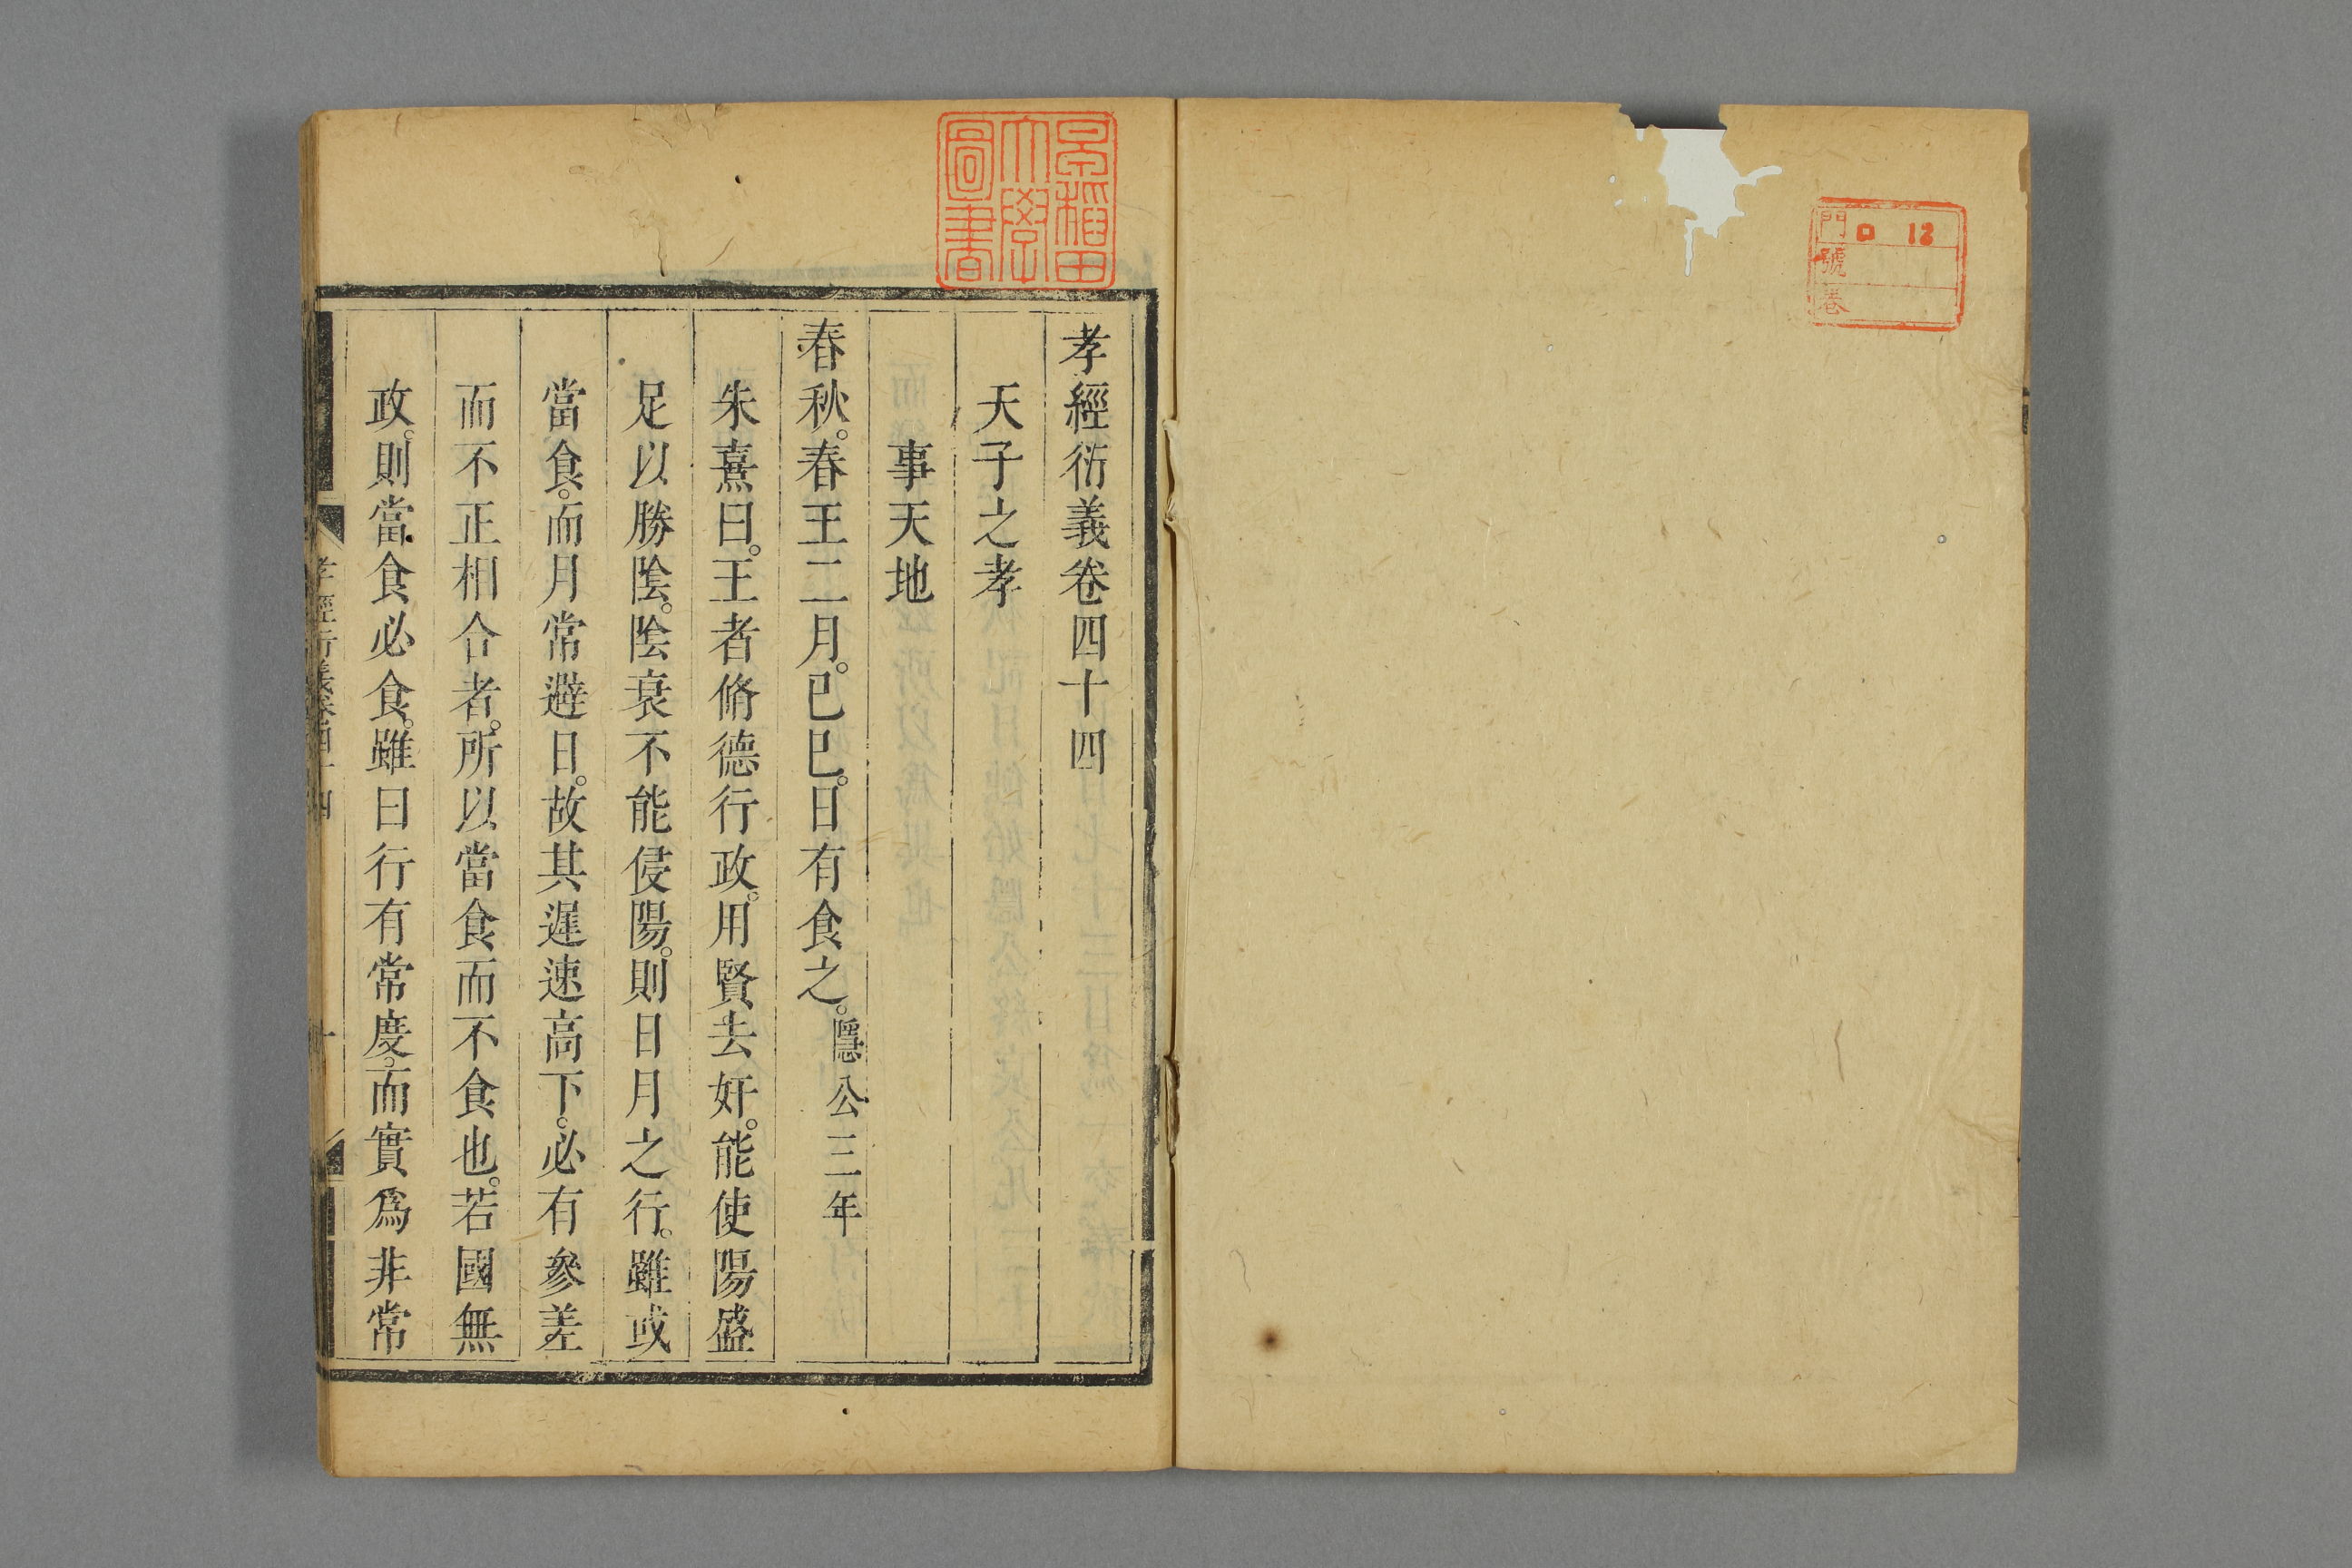 門
號
巻
ロ 12
早稲田
大學
圖書
孝經衍義卷四十四
天子之孝
事天地
春秋。春王二月。己巳。日有食之。隱公三年
朱熹曰。王者脩德行政。用賢去奸。能使陽盛
足以勝陰。陰衰不能侵陽。則日月之行。雖或
當食。而月常避日。故其遲速高下。必有參差
而不正相合者。所以當食而不食也。若國無
政。則當食必食。雖曰行有常度。而實爲非常
孝經衍義卷四十四